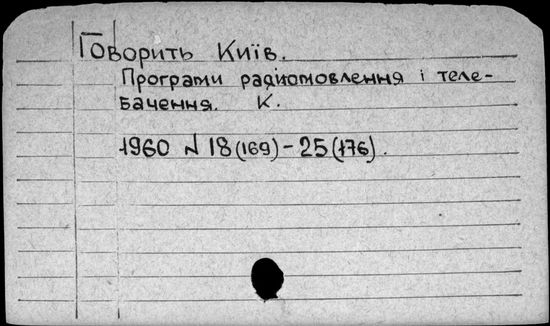 Говорить Київ.
Програми радіомовлення і теле-
бачення. К.
1960 N 18(169)-25(176).